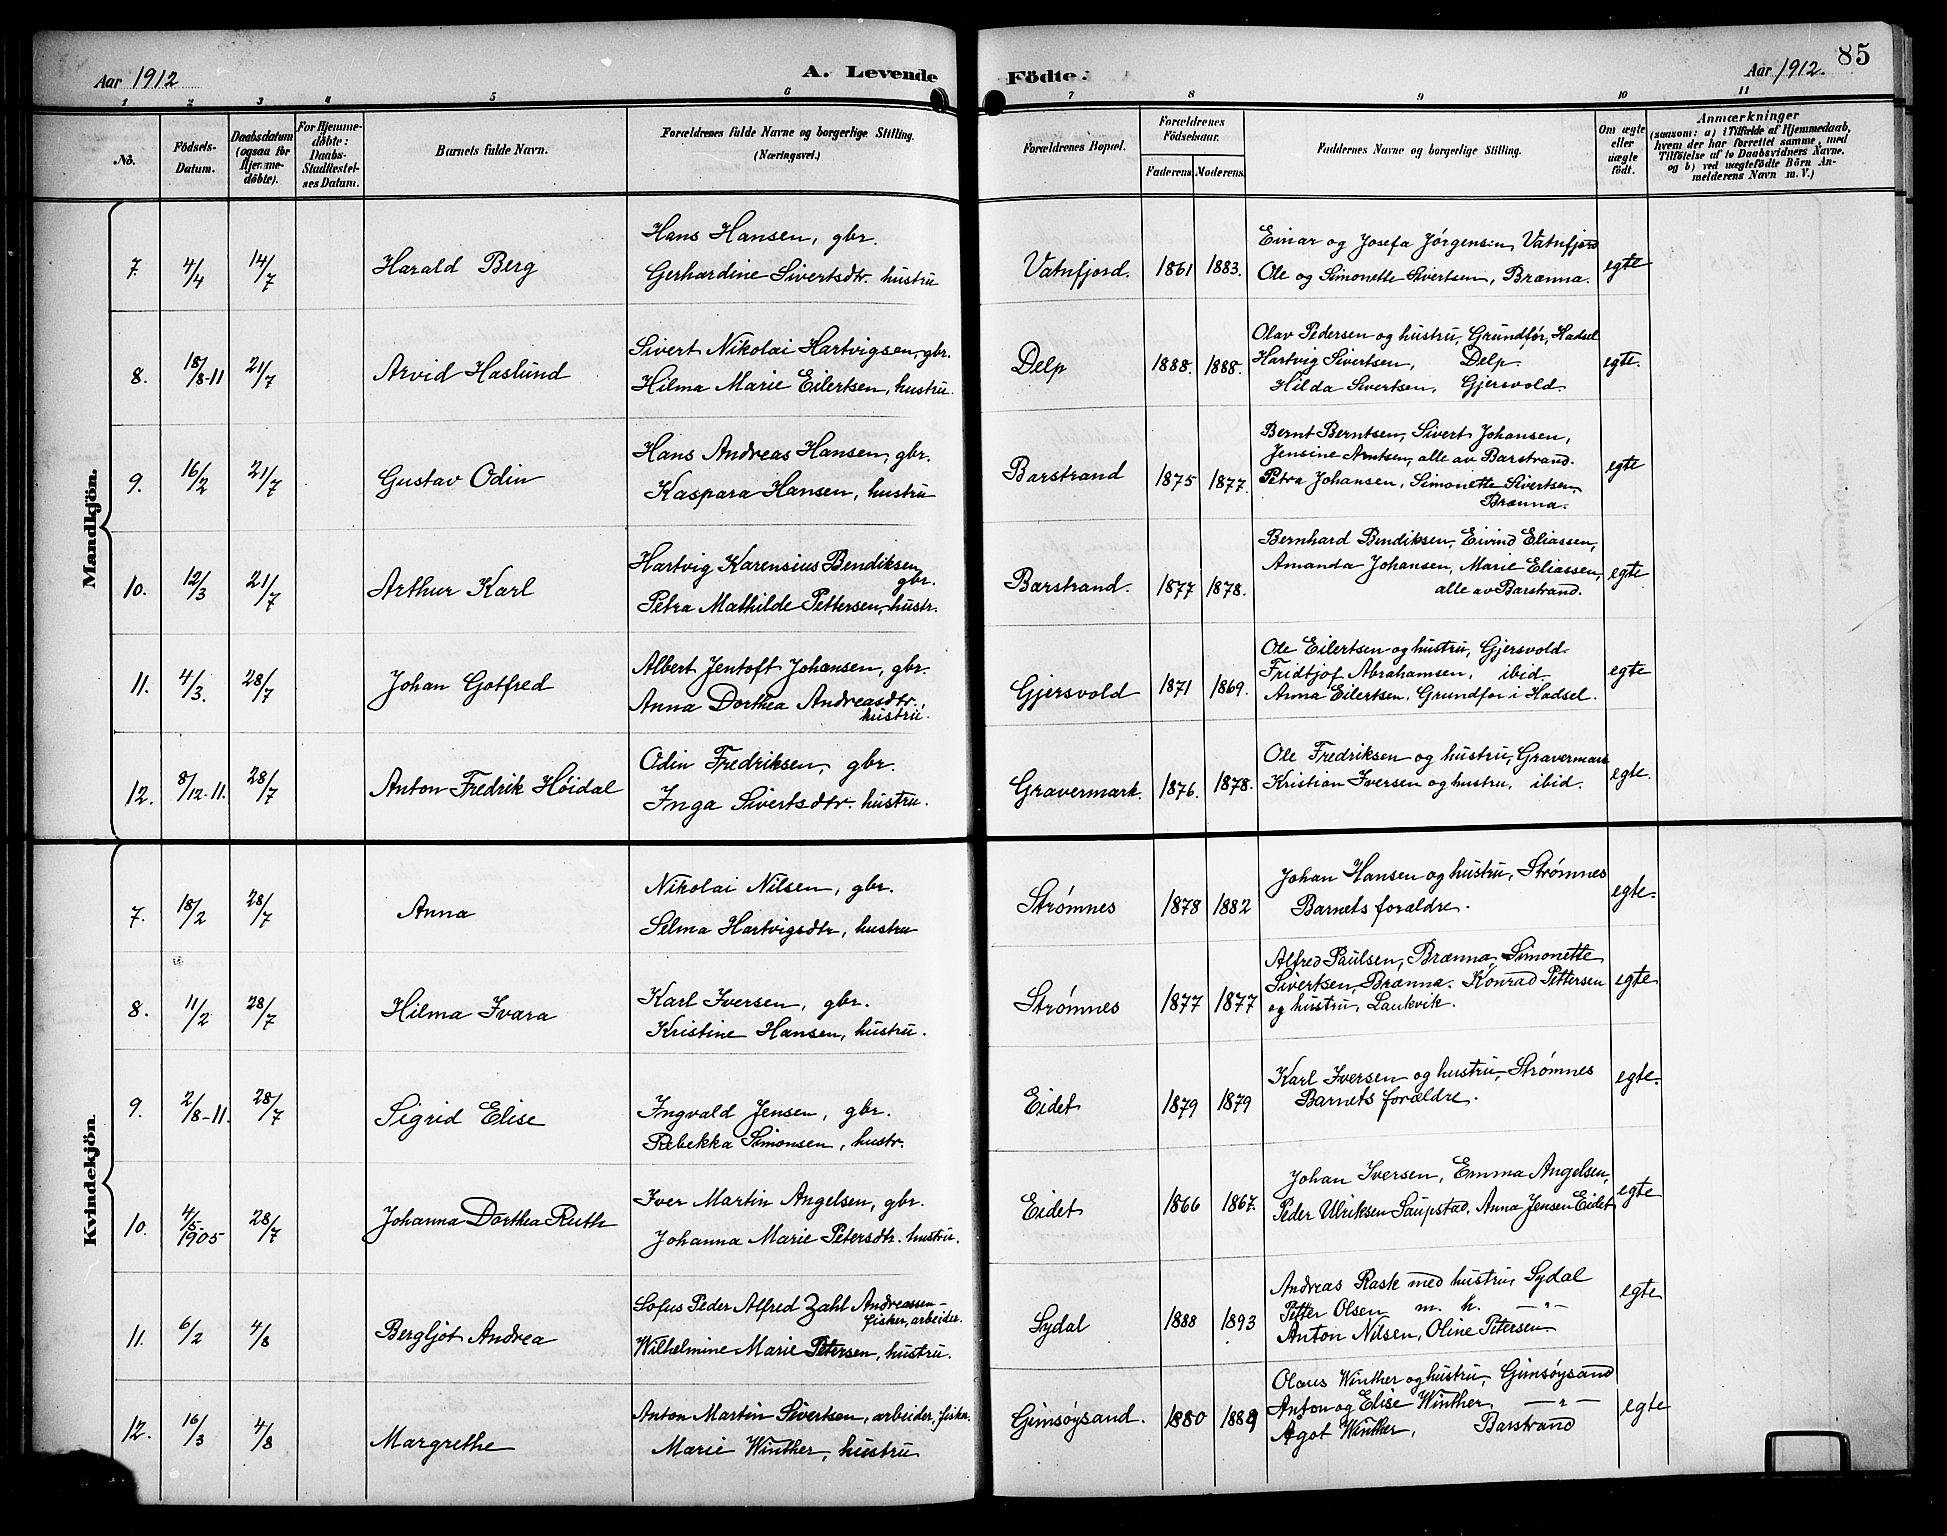 Aar 1912 A. Levende Födte. Aar 1912. 85
1 2 3 4 5 6 7 8 9 10 11
No. Födsels-Datum. Daabsdatum (ogsaa for Hjemme-döbte). For Hjemme-döbte: Daabs-Stadfæstel-ses Datum. Barnets fulde Navn. Forældrenes fulde Navne og borgerlige Stilling. (Næringsvei.) Forældrenes Bopæl. Forældrenes Födselsaar. Faderens Moderens Faddernes Navne og borgerlige Stilling. Om ægte eller uægte födt. Anmærkninger
(saasom: a) i Tilfælde af Hjemmedaab, hvem der har forrettet samme, med Tilföielse af to Daabsvidners Navne. og b) ved uægtefödte Börn An-melderens Navn m. V.)
Mandkjön.
7. 4/4 14/7 Harald Berg Hans Hansen, gbr.
Gerhardine Sivertsdtr. hustru
Vatnfjord. 1861 1883. Einar og Josefa Jørgensen, Vatnfjord
Ole og Simonette Sivertsen, Brænna. egte
8. 18/8-11 21/7 Arvid Haslund Sivert Nikolai Hartvigsen, gbr.
Hilma Marie Eilertsen, hustru.
Delp 1888. 1888. Olav Pedersen og hustru, Grundfør, Hadsel
Hartvig Sivertsen, Delp
Hilda Sivertsen, Gjersvold. egte.
9. 16/2 21/7 Gustav Odin Hans Andreas Hansen, gbr.
Kaspara Hansen, hustru
Barstrand 1875 1877. Bernt Berntsen, Sivert Johansen,
Jensine Arntsen, alle av Barstrand.
Petra Johansen, Simonette Sivertsen,
Brænna. egte
10. 12/3 21/7 Arthur Karl Hartvig Karensius Bendiksen
gbr.
Petra Mathilde Pettersen, hustr.
Barstrand. 1877 1878. Bernhard Bendiksen, Eivind Eliassen,
Amanda Johansen, Marie Eliassen,
alle av Barstrand. egte
11. 4/3. 28/7 Johan Gotfred Albert Jentoft Johansen, gbr.
Anna Dorthea Andreasdtr.,
hustru.
Gjersvold 1871 1869. Ole Eilertsen og hustru, Gjersvold.
Fridtjof Abrahamsen, ibid.
Anna Eilertsen, Grundfor i Hadsel. egte
12. 8/12-11. 28/7 Anton Fredrik Høidal Odin Fredriksen, gbr.
Inga Sivertsdtr. hustru.
Gravermark. 1876. 1878. Ole Fredriksen og hustru, Gravermark
Kristian Iversen og hustru, ibid. egte.
Kvindekjön.
7. 18/2 28/7 Anna Nikolai Nilsen, gbr.
Selma Hartvigsdtr, hustru
Strømnes 1878 1882 Johan Hansen og hustru, Strømnes
Barnets forældre. egte.
8. 11/2 28/7 Hilma Ivara Karl Iversen, gbr.
Kristine Hansen, hustru.
Strømnes 1877 1877 Alfred Paulsen, Brænna, Simonette
Sivertsen, Brænna. Konrad Pettersen
og hustru, Laukvik. egte
9. 2/8-11. 28/7 Sigrid Elise Ingvald Jensen, gbr.
Rebekka Simonsen, hustr.
Eidet 1879 1879 Karl Iversen og hustru, Strømnes
Barnets forældre. egte.
10. 4/5 1905 28/7 Johanna Dorthea Ruth Iver Martin Angelsen, gbr.
Johanna Marie Petersdtr. hustru.
Eidet 1866 1867. Johan Iversen, Emma Angelsen,
Peder Ulriksen Saupstad, Anna Jensen Eidet egte
11. 6/2 4/8 Bergljot Andrea Sofus Peder Alfred Zahl Andreassen
fisker, arbeider.
Wilhelmine Marie Petersen, hustru.
Sydal 1888 1893 Andreas Rask med hustru, Sydal
Petter Olsen m. h. —"—
Anton Nilsen, Oline Petersen. egte
12. 16/3 4/8 Margrethe Anton Martin Sivertsen, arbeider, fisker.
Marie Winther, hustru
Gimsøysand. 1880 1889 Olaus Winther og hustru, Gimsøysand
Anton og Elise Winther, —"—
Agot Winther, Barstrand egte